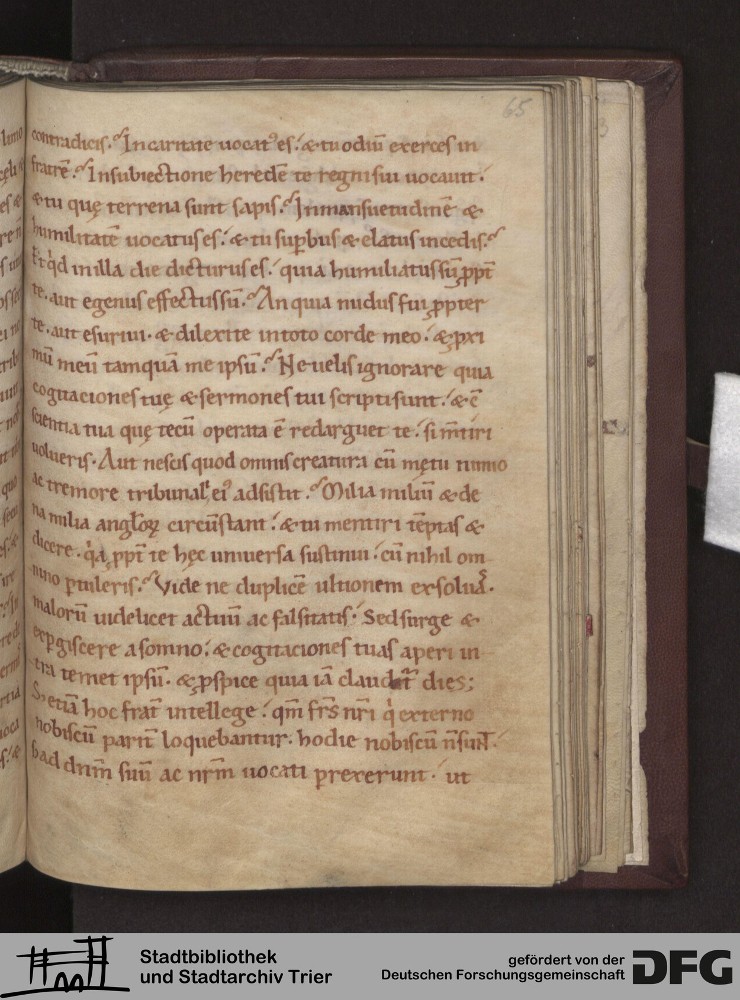 65
contradicis. In caritate uocatꝰ es. & tu odiū exerces in
fratrē. In subiectione heredē te regni sui uocauit.
& tu quę terrena sunt sapis. In mansuetudinē &
humilitatē uocatus es. & tu suꝑbus & elatus incedis.
Et qͥd in illa die dicturus es. quia humiliatus sū ꝓpt̄
te. aut egenus effectus sū. An quia nudus fui ꝓpter
te. aut esuriui. & dilexi te in toto corde meo. & ꝓxi
mū meū tamquā me ipsū. Ne uelis ignorare quia
cogitaciones tuę & sermones tui scripti sunt. & c̄
scientia tua quę tecū operata ē redarguet te. si m̄tiri
uolueris. Aut nescis quod omnis creatura cū mętu nimio
ac tremore tribunal eiꝰ adsistit. Milia miliū & de
na milia angl̄oꝝ circūstant. & tu mentiri tēptas &
dicere. qͥa ꝓpt̄ te hęc uniuersa sustinui. cū nihil om
nino ꝑtuleris. Vide ne duplicē ultionem exsoluas.
malorū uidelicet actuū ac falsitatis. Sed surge &
exꝑgiscere a somno. & cogitaciones tuas aperi in
tra temet ipsū. & ꝓspice quia iā claudit᷒ dies;
S; etiā hoc frat̄ intellege. qm̄ frs̄ nr̄i qͥ externo
nobiscū parit̄ loquebantur. hodie nobiscū n̄ sunt.
s; ad dn̄m suū ac nr̄m uocati prexerunt. ut
Stadtbibliothek
und Stadtarchiv Trier
gefördert von der
Deutschen Forschungsgemeinschaft
DFG